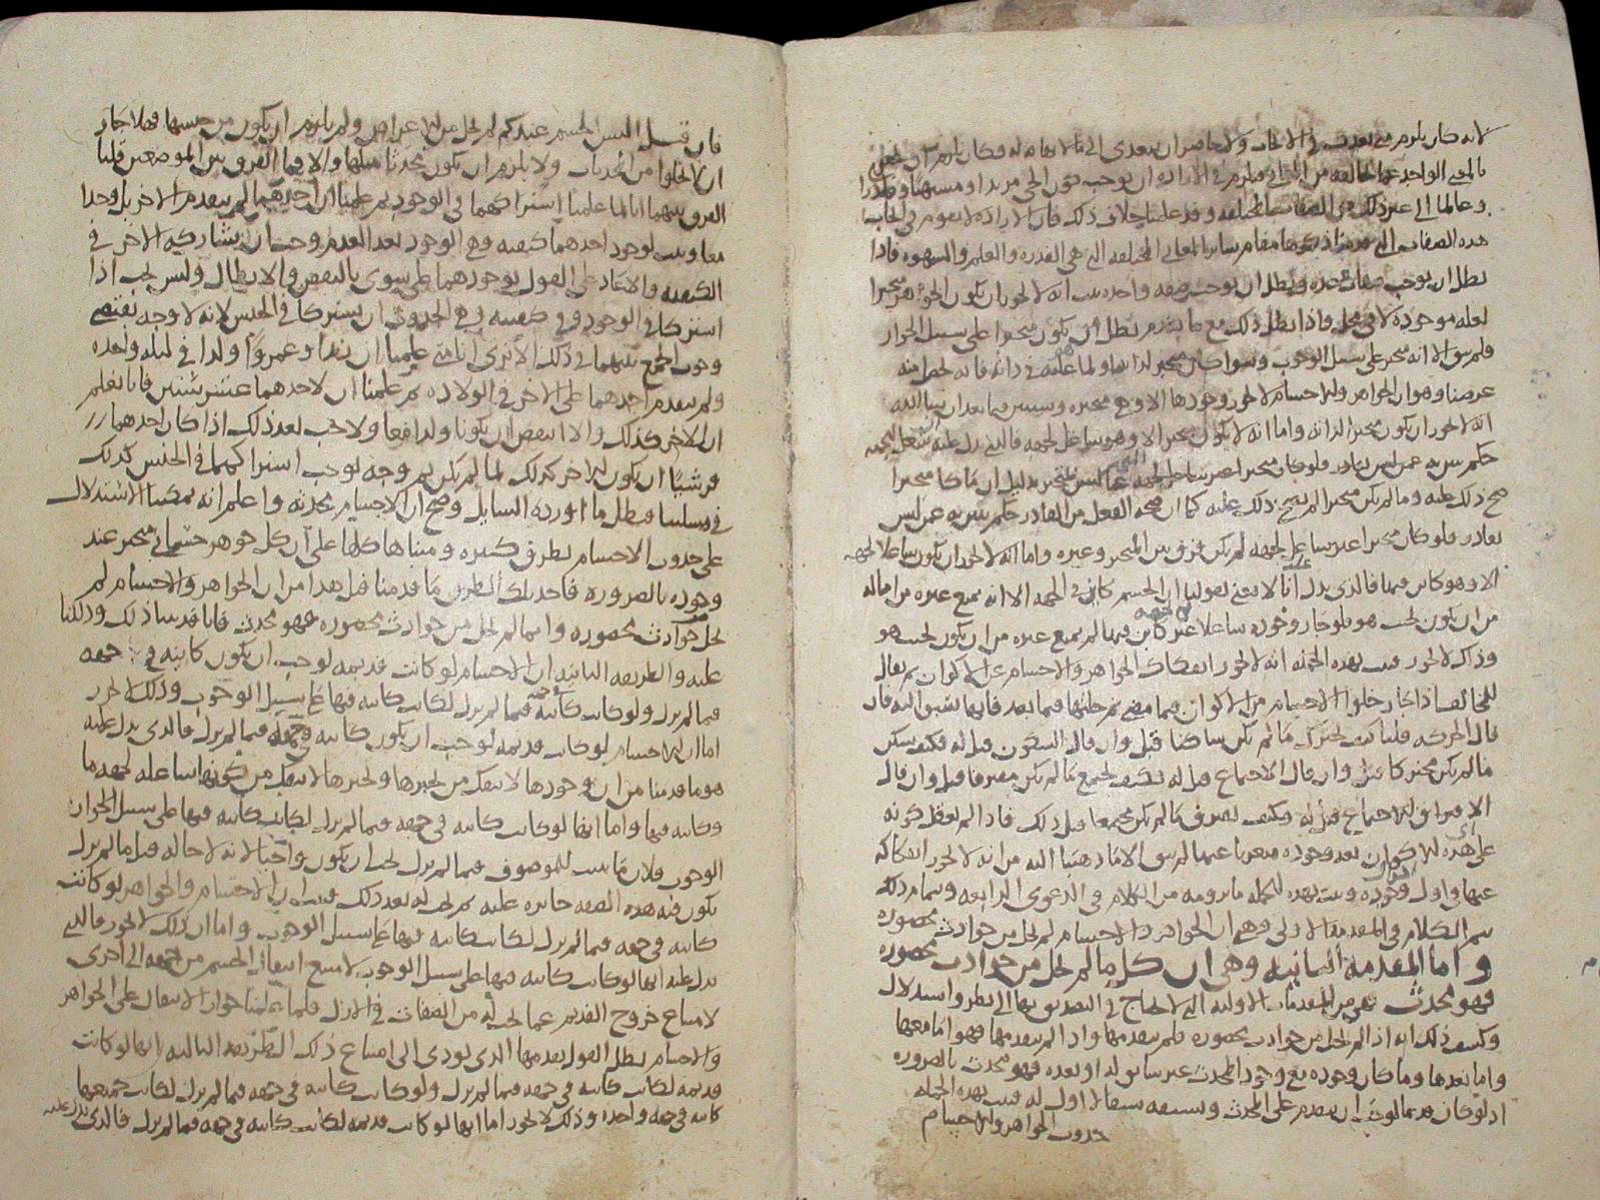 لانه كان يلزم
بالمعنى الواحد
وعالما الى غير ذلك من الصفات المختلفة وقد علمنا خلاف ذلك فان الارادة لا تقوم في الجاب
هذه الصفات التي قدمنا ذكرها مقام سائر المعاني المختلفة التي هي القدرة والعلم والشهوة فاذا
بطل ان يوجب صفات عدة وبطل ان يوجب صفة واحدة ثبت انه لا يجوز ان يكون الجوهر متحيزا
لعلة موجودة لا في محل واذا بطل ذلك مع ما تقدم بطل ان يكون متحيزا على سبيل الجواز
فلم يبق الا انه متحيز على سبيل الوجوب وسوا كان متحيزا لذاته او لما هو عليه في ذاته فانه يحصل منه
غرضنا وهو ان الجواهر والاجسام لا يجوز وجودها الا وهي متحيزة وسنبين فيما بعد ان شا الله
انه لا يجوز ان يكون متحيزا لذاته واما انه لا يكون متحيزا الا وهو شاغل لجهة فالذي يدل عليه
صح ذلك عليه وما لم يكن متحيزا لم يصح ذلك عليه كما ان صحة الفعل من القادر حكم يتميز به عمن ليس
بقادر فلو كان متحيزا غير شاغل لجهة لم يكن فرق بين المتحيز وغيره واما انه لا يجوز ان يكون شاغلا لجهة
الا وهو كائن فيها فالذي يدل عليه انا لا نعني بقولنا ان الجسم كائن في الجهة الا انه يمنع غيره من امثاله
من ان يكون بحيث هو فلو جاز وجوده شاغلا غير كائن فيها لم يمنع غيره من ان يكون بحيث هو
وذلك لا يجوز فثبت بهذه الجملة انه لا يجوز انفكاك الجواهر والاجسام عن الاكوان ثم يقال
للمخالف اذا جاز خلو الاجسام من الاكوان فيما مضى ثم حلتها فيما بعد فايها تسبق اليه فان
قال الحركة قلنا كيف يتحرك ما لم يكن ساكنا قبل وان قال السكون قيل له فكيف يسكن
ما لم يكن متحركا قبل وان قال الاجتماع قيل له فكيف يجتمع ما لم يكن مفترقا قبل وان قال
الافتراق قيل له وكيف يفترق ما لم يكن مجتمعا قبل ذلك فاذا لم يعقل كونه
على هذه الاكوان بعد وجوده متعريا عنها لم يبق الا ما ذهبنا اليه من انه لا يجوز انفكاكه
عنها في اول وجوده وثبت بهذه الجملة ما نرومه من الكلام في الدعوى الرابعة وتمام ذلك
يتم الكلام في المقدمة الاولى وهي ان الجواهر والاجسام لم تخل من حوادث محصورة
واما المقدمة الثانية وهي ان كل ما لم يخل من حوادث محصورة
فهو محدث فهي من المقدمات الاولية التي لا يحتاج في التصديق بها الى نظر واستدلال
وكيف ذلك انه اذا لم يخل من حوادث محصورة فلم يتقدمها واذا لم يتقدمها فهو اما معها
واما بعدها وما كان وجوده مع وجود المحدث غير سابق له او بعده فهو محدث بالضرورة
اذ لو كان قديما لوجب ان يتقدم على المحدث ويسبقه سبقا لا اول له فثبت بهذه الجملة
حدوث الجواهر والاجسام
فان قيل اليس الجسم عندكم لم يخل من الاعراض ولم يلزم ان يكون من جنسها فهلا جاز
ان لا يخلوا من المحدثات ولا يلزم ان يكون محدثا مثلها والا فما الفرق بين الموضعين قلنا
الفرق بينهما انا لما علمنا اشتراكهما في الوجود ثم علمنا ان احدهما لم يتقدم الاخر بل وجدا
معا وثبت لوجود احدهما كيفية وهي الوجود بعد العدم وجب ان يشاركه الاخر في
الكيفية والا عاد على القول بوجودهما على سوى بالنقض والابطال وليس يجب اذا
اشتركا في الوجود وفي كيفيته وهي الحدوث ان يشتركا في الجنس لانه لا وجه يقتضي
وجوب الجمع بينهما في ذلك الا ترى انا متى علمنا ان زيدا وعمروا ولدا في ليلة واحدة
ولم يتقدم احدهما على الاخر في الولادة ثم علمنا ان لاحدهما عشر سنين فانا نعلم
ان الاخر كذلك والا انتقض ان يكونا ولدا معا ولا يجب بعد ذلك اذا كان احدهما
قرشيا ان يكون الاخر كذلك لما لم يكن ثم وجه يوجب اشتراكهما في الجنس كذلك
في مسئلتنا فبطل ما اورده السايل وصح ان الاجسام محدثة واعلم انه يمكننا الاستدلال
على حدوث الاجسام بطرق كثيرة ومبناها كلها على ان كل جوهر حتما في متحيز عند
وجوده بالضرورة فاحد تلك الطرق ما قدمنا قبل هذا من ان الجواهر والاجسام لم
تخل من حوادث محصورة وانما لم يخل من حوادث محصورة فهو محدث فانا قد بينا ذلك ودللنا
عليه والطريقة الثانية ان الاجسام لو كانت قديمة لوجب ان يكون كاينة في جهة
فيما لم يزل ولو كانت كاينة في جهة فيما لم يزل لكانت كاينة فيها على سبيل الوجوب وذلك لا يجوز
اما ان الاجسام لو كانت قديمة لوجب ان يكون كاينة في جهة فيما لم يزل فالذي يدل عليه
هو ما قدمنا من ان وجودها لا ينفك من تحيزها وتحيزها لا ينفك من كونها شاغلة لجهة ما
وكاينة فيها واما انها لو كانت كاينة في جهة فيما لم يزل لكانت كاينة فيها على سبيل
الوجوب فلان ما ثبت للموصوف فيما لم يزل يجب ان يكون واجبا لانه لا حالة قبل ما لم يزل
يكون فيه هذه الصفة جايزة عليه ثم تجب له بعد ذلك فثبت ان الاجسام والجواهر لو كانت
كاينة في جهة فيما لم يزل لكانت كاينة فيها على سبيل الوجوب واما ان ذلك لا يجوز فالذي
يدل عليه انها لو كانت كاينة فيها على سبيل الوجوب لامتنع انتقال الجسم من جهة الى اخرى
لامتناع خروج القديم عما يجب له من الصفات في الازل فلما علمنا جواز الانتقال على الجواهر
والاجسام بطل القول بقدمها الذي يؤدي الى امتناع ذلك الطريقة الثالثة انها لو كانت
قديمة لكانت كاينة في جهة فيما لم يزل ولو كانت كاينة في جهة فيما لم يزل لكانت جميعها
كاينة في جهة واحدة وذلك لا يجوز اما انها لو كانت قديمة لكانت كاينة في جهة فيما لم يزل فالذي يدل عليه